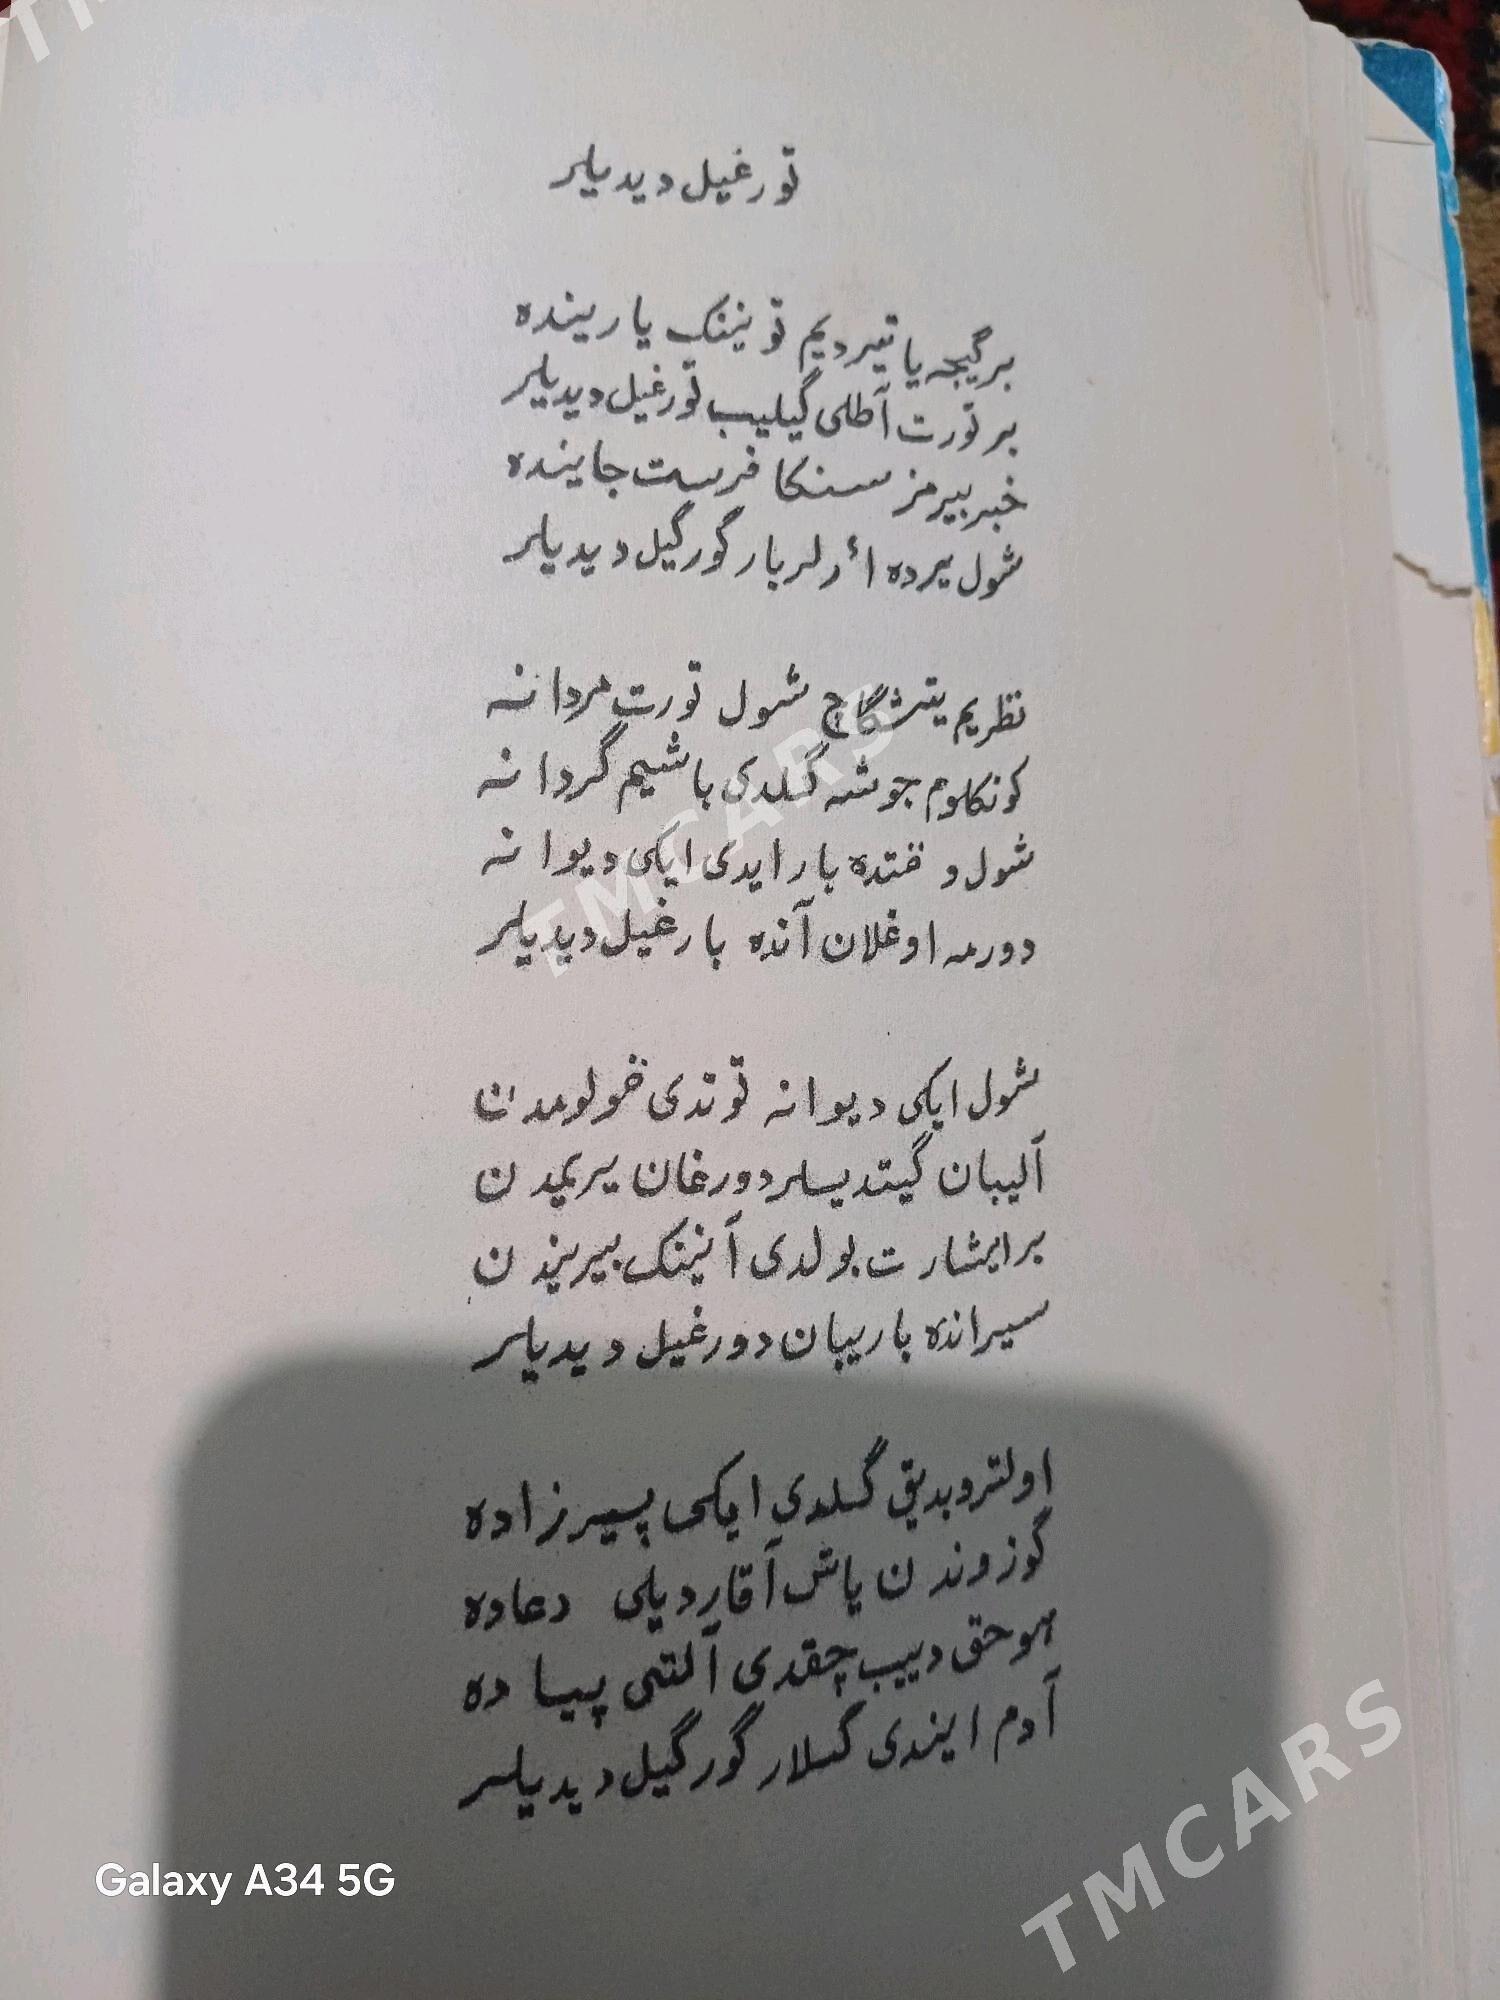 تورغیل دیدیلر
بر گیجه یاتیردیم تونینک یارینده
بر تورت آطلی گیلیب تورغیل دیدیلر
خبر بیرمز سنکا فرست جاینده
شول یرده أرلر بار گورگیل دیدیلر
نظریم یتشگاچ شول تورت مردانه
کونکلوم جوشه گلدی باشیم گردانه
شول وقتده بار ایدی ایکی دیوانه
دورمه اوغلان آنده بارغیل دیدیلر
شول ایکی دیوانه توتدی قولومدن
آلیبان گیتدیلر دورغان یریمدن
بر ایشارت بولدی آنینک بیریندن
سیرانده باریبان دورغیل دیدیلر
اولتروبدیق گلدی ایکی پیرزاده
گوزوندن یاش آقار دیلی دعاده
هو حق دییب چقدی آلتی پیاده
آدم ایندی گلار گورگیل دیدیلر
Galaxy A34 5G
TMCARS
TMCARS